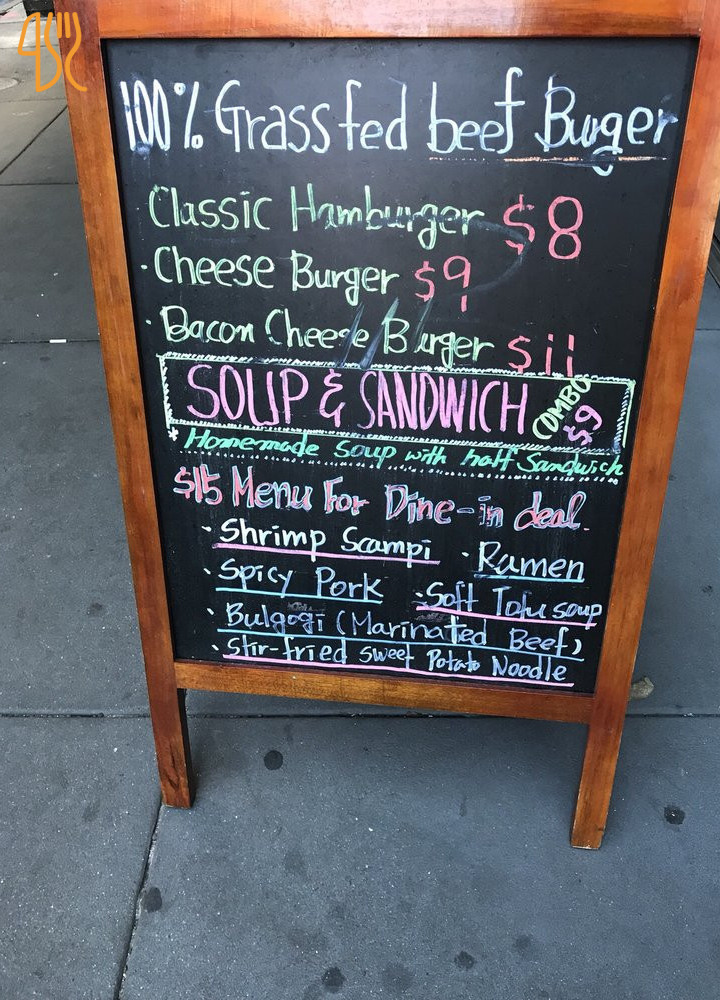 100% Grass fed beef Burger
Classic Hamburger $8
· Cheese Burger $9
· Bacon Cheese Burger $11
SOUP & SANDWICH COMBO $9
* Homemade Soup with half Sandwich
$15 Menu For Dine-in deal.
· Shrimp Scampi · Ramen
· Spicy Pork · Soft Tofu soup
· Bulgogi (Marinated Beef)
· Stir-fried sweet Potato Noodle